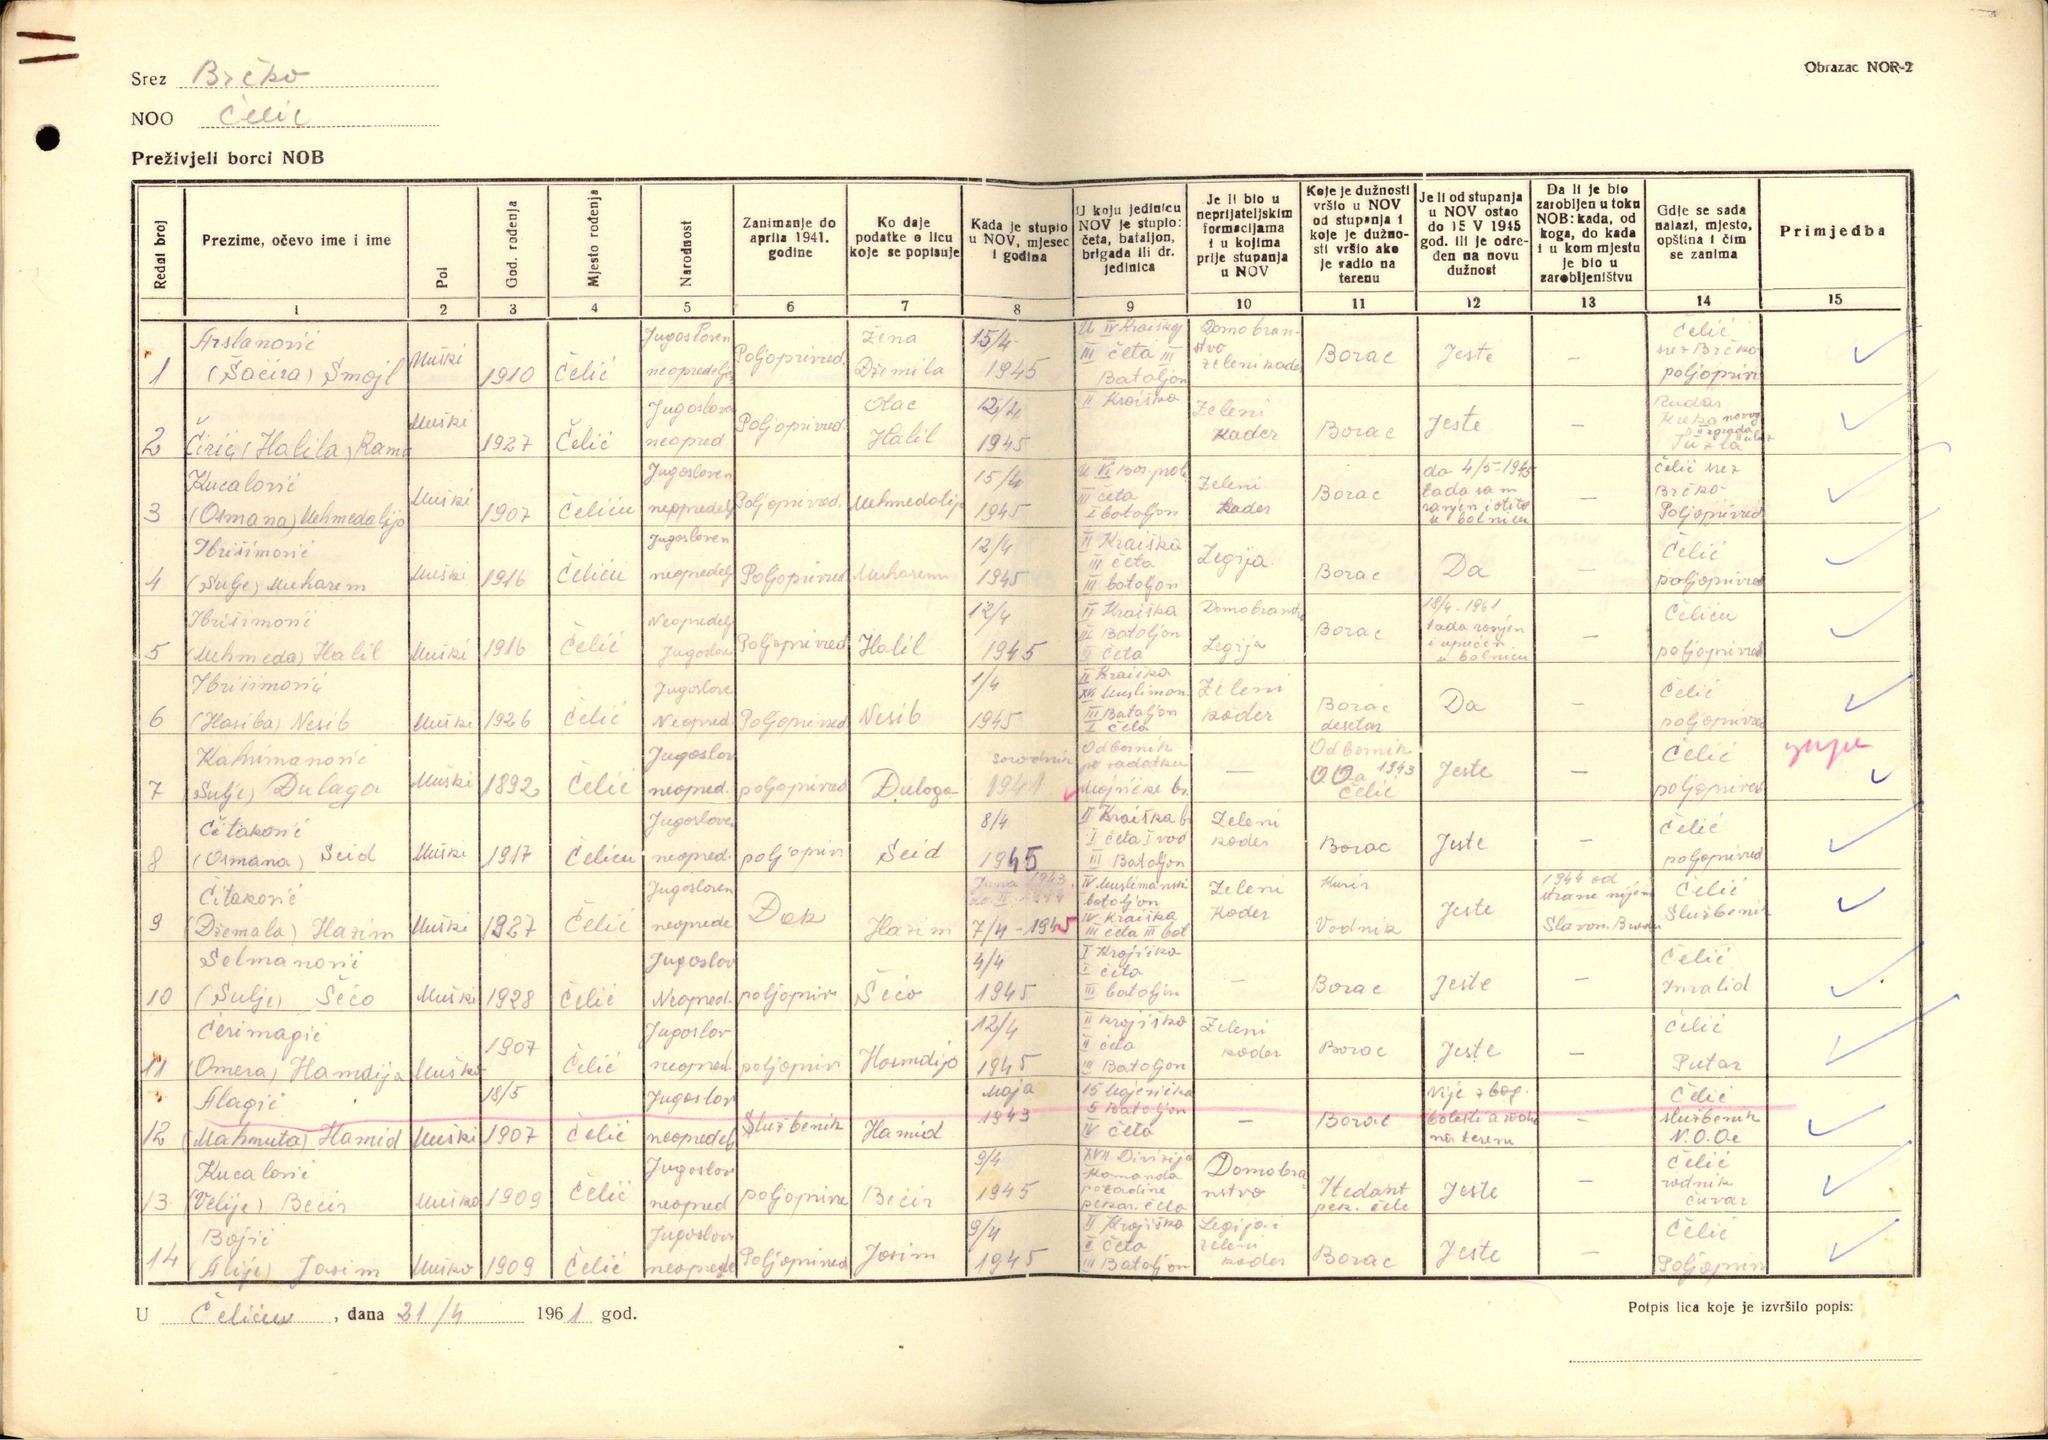 Obrazac NOR-2
Srez Brčko
NOO Čelić
Preživjeli borci NOB
Redni broj
Prezime, očevo ime i ime
Pol
God. rođenja
Mjesto rođenja
Narodnost
Zanimanje do aprila 1941. godine
Ko daje podatke o licu koje se popisuje
Kada je stupio u NOV, mjesec i godina
U koju jedinicu NOV je stupio: četa, bataljon, brigada ili dr. jedinica
Je li bio u neprijateljskim formacijama i u kojima prije stupanja u NOV
Koje je dužnosti vršio u NOV od stupanja i koje je dužnosti vršio ako je radio na terenu
Je li od stupanja u NOV ostao do 15 V 1945 god. ili je određen na novu dužnost
Da li je bio zarobljen u toku NOB: kada, od koga, do kada i u kom mjestu je bio u zarobljeništvu
Gdje se sada nalazi, mjesto, opština i čim se zanima
Primjedba
1 2 3 4 5 6 7 8 9 10 11 12 13 14 15
1 Arslanović (Šaćira) Smojl Muški 1910 Čelić Jugosloven neopredelj Poljoprivred. Žena Džemila 15/4 1945 U IV Kraiškoj III četa III Bataljon Domobranstvo zeleni kader Borac Jeste — Čelić srez Brčko poljopriv
2 Ćirić (Halila) Ramo Muški 1927 Čelić Jugoslov neopred Poljoprivred. Otac Halil 12/4 1945 II Kraiška Zeleni kader Borac Jeste — Rudar Kreka nova zgrada Tuzla
3 Kucalović (Osmana) Mehmedalija Muški 1907 Čeliću Jugosloven neopredelj Poljoprivred. Mehmedalija 15/4 1945 U VI Bos. prol III četa I botoljon Zeleni kader Borac do 4/5-1945 tada sam ranjen i otišo u bolnicu — Čelić srez Brčko Poljoprivred
4 Ibrišimović (Sulje) Muharem Muški 1916 Čeliću Jugosloven neopredelj Poljoprivred Muharem 12/4 1945 II Kraiška III četa III botoljon Legija Borac Da — Čelić poljoprivred
5 Ibrišimović (Mehmeda) Halil Muški 1916 Čelić Neopredelj Jugoslov Poljoprivred Halil 12/4 1945 II Kraiška III Botoljon II četa Domobranstvo Legija Borac 18/4-1961 tada ranjen i upućen u bolnicu — Čeliću poljoprivred
6 Ibrišimović (Hasiba) Nesib Muški 1926 Čelić Jugoslove Neopred Poljoprivred Nesib 1/4 1945 II Kraiška XVI Musliman. III Bataljon I četa Zeleni koder Borac desetar Da — Čelić poljoprivred
7 Kahrimanović (Sulje) Dulaga Muški 1892 Čelić Jugoslov neopred. poljoprivred Dulaga 1941 Odbornik po zadatku Majevičke br. — Odbornik OOa 1943 Čelić Jeste — Čelić poljoprivred
8 Čitaković (Osmana) Seid Muški 1917 Čeliću Jugosloven neopred. poljopriv Seid 8/4 1945 II Kraiška b I četa I vod III Bataljon Zeleni koder Borac Jeste — Čelić poljoprivred
9 Čitaković (Džemala) Hazim Muški 1927 Čelić Jugosloven neoprede Đak Hazim Juna 1943. 7/4-1945 IV Muslimanski botoljon IV Kraiška III četa III bat Zeleni Koder Kurir Vodnik Jeste 1944 od strane nijem Slavon. Brodu Čelić Službenik
10 Selmanović (Sulje) Šećo Muški 1928 Čelić Jugoslov Neopred. poljopriv Šećo 4/4 1945 I Krajiška I četa III botoljon — Borac Jeste — Čelić Invalid
11 Ćerimagić (Omera) Hamdija Muško 1907 Čelić Jugoslov neopred. poljopriv Hamdija 12/4 1945 II krojiško II četa III Botoljon Zeleni koder Borac Jeste — Čelić Putar
12 Alagić (Mahmuta) Hamid Muški 18/5 1907 Čelić Jugoslov neopredelj Službenik Hamid Maja 1943 15 Majevička 5 Bataljon IV četa — Borac Nije zbog bolesti a radio na terenu — Čelić službenik N.O.Oe
13 Kucalović (Velije) Bećir Muško 1909 Čelić Jugoslov neopred poljoprivre Bećir 9/4 1945 XVII Divizija Komanda pozadine pekar. četa Domobranstvo Itedant pek. čete Jeste — Čelić vodnik čuvar
14 Bojić (Alije) Jasim Muško 1909 Čelić Jugoslov neoprede Poljoprivred Jasim 9/4 1945 II Krojiška II četa III Bataljon Legija i zeleni koder Borac Jeste — Čelić Poljopriv
U Čeliću, dana 21/4 1961 god.
Potpis lica koje je izvršilo popis: